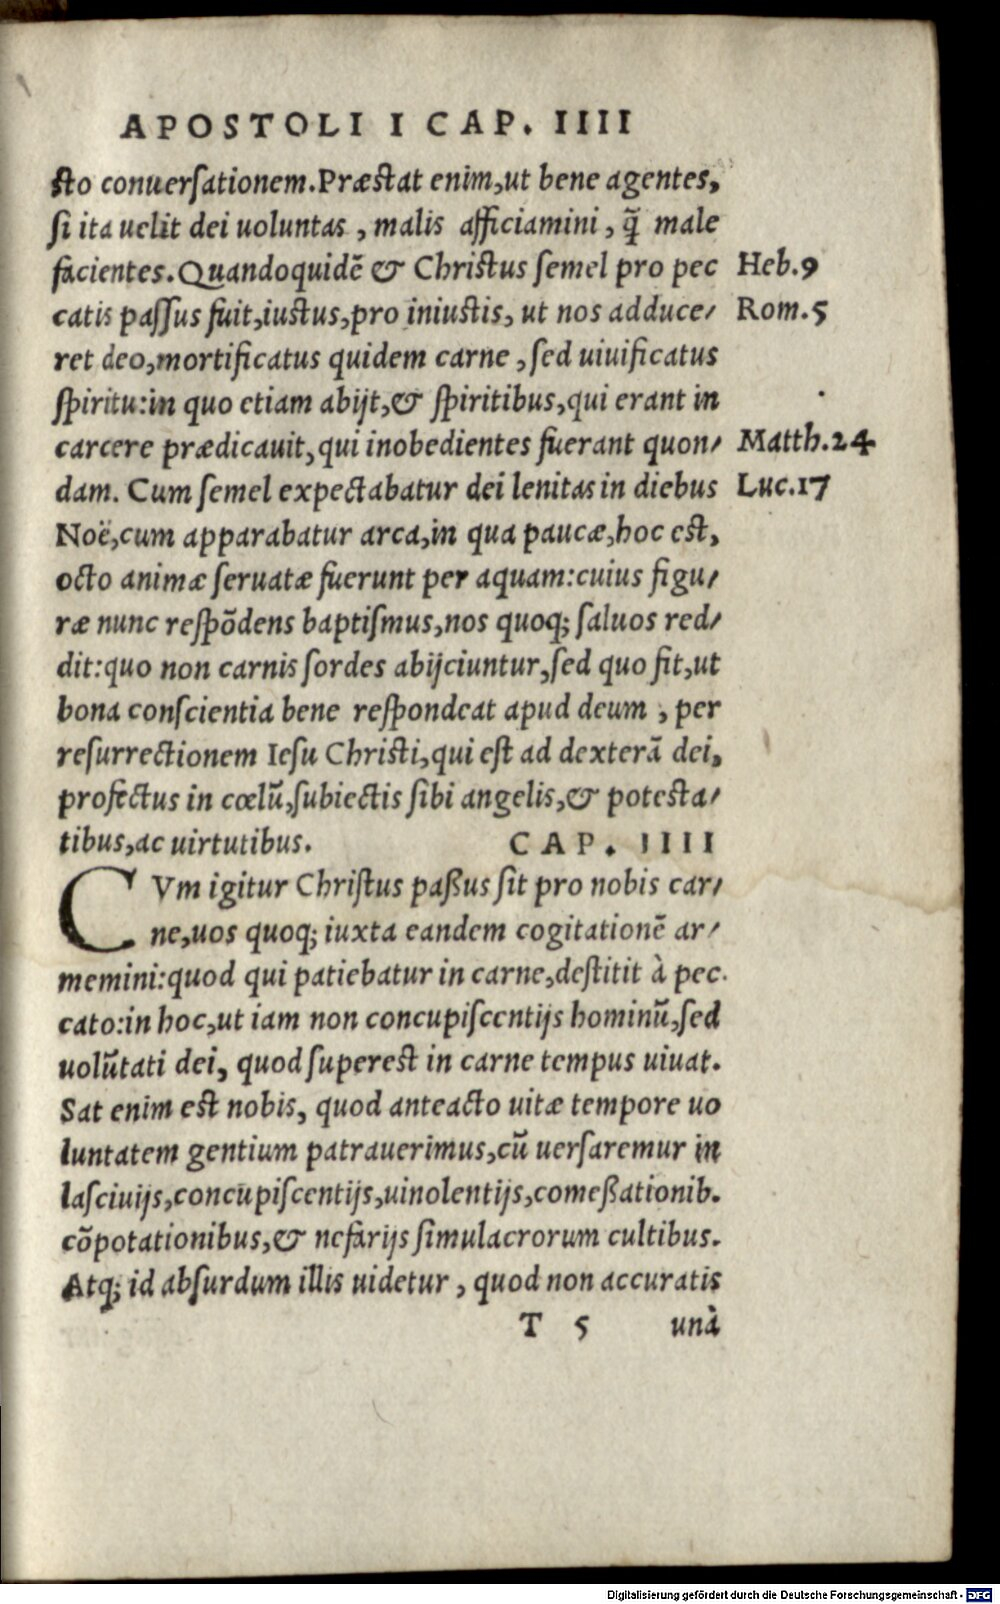 APOSTOLI I CAP. IIII
sto conuersationem. Præstat enim, ut bene agentes,
si ita uelit dei uoluntas, malis afficiamini, q̃ male
facientes. Quandoquidẽ & Christus semel pro pec Heb.9
catis passus fuit, iustus, pro iniustis, ut nos adduce/ Rom.5
ret deo, mortificatus quidem carne, sed uiuificatus
spiritu: in quo etiam abijt, & spiritibus, qui erant in
carcere prædicauit, qui inobedientes fuerant quon/ Matth.24
dam. Cum semel expectabatur dei lenitas in diebus Luc.17
Noë, cum apparabatur arca, in qua paucæ, hoc est,
octo animæ seruatæ fuerunt per aquam: cuius figu/
ræ nunc respõdens baptismus, nos quoq; saluos red/
dit: quo non carnis sordes abijciuntur, sed quo fit, ut
bona conscientia bene respondeat apud deum, per
resurrectionem Iesu Christi, qui est ad dexterã dei,
profectus in cœlũ, subiectis sibi angelis, & potesta/
tibus, ac uirtutibus. CAP. IIII
CVm igitur Christus paßus sit pro nobis car/
ne, uos quoq; iuxta eandem cogitationẽ ar/
memini: quod qui patiebatur in carne, destitit à pec.
cato: in hoc, ut iam non concupiscentijs hominũ, sed
uolũtati dei, quod superest in carne tempus uiuat.
Sat enim est nobis, quod anteacto uitæ tempore uo
luntatem gentium patrauerimus, cũ uersaremur in
lasciuijs, concupiscentijs, uinolentijs, comeßationib.
cõpotationibus, & nefarijs simulacrorum cultibus.
Atq; id absurdum illis uidetur, quod non accuratis
T 5 unà
Digitalisierung gefördert durch die Deutsche Forschungsgemeinschaft - DFG